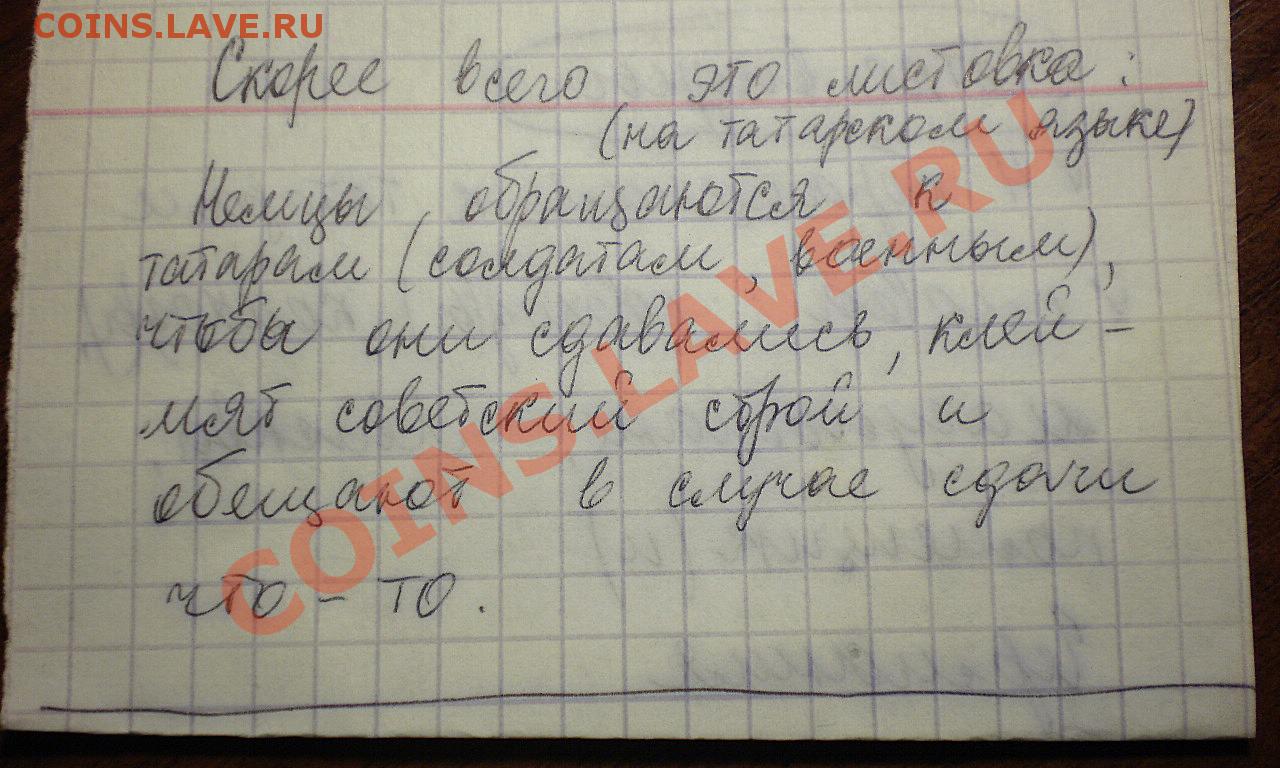 COINS.LAVE.RU
Скорее всего это листовка:
(на татарском языке)
Немцы обращаются к
татарам (солдатам, военным),
чтобы они сдавались, клей-
мят советский строй и
обещают в случае сдачи
что-то.
COINS.LAVE.RU